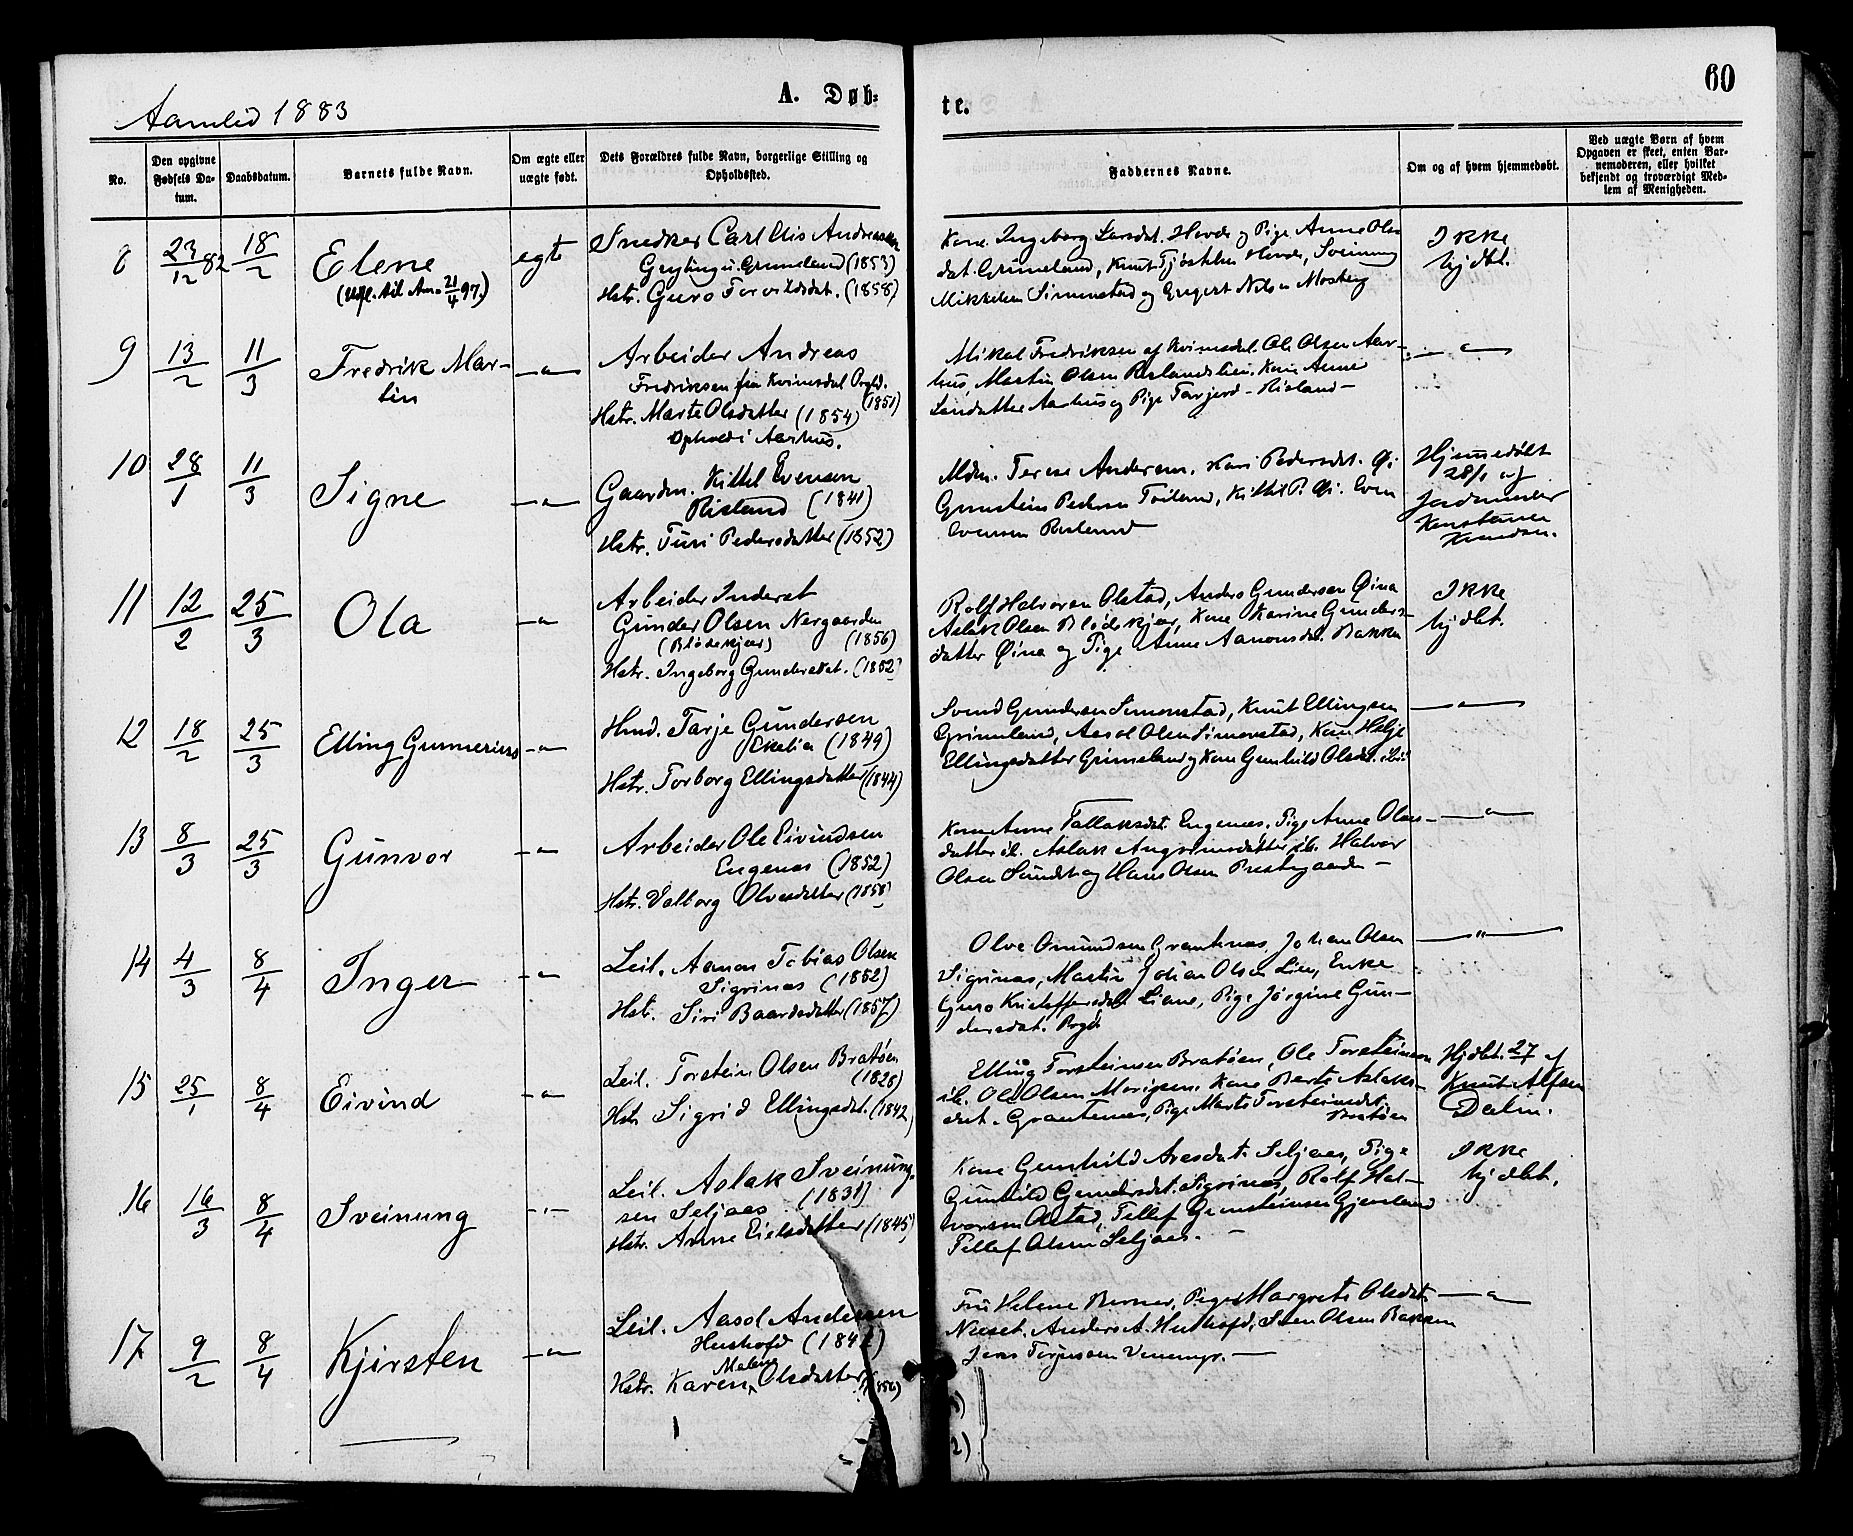 60
A. Døb=
te.
Aamlid 1883
No.
Den opgivne Fødsels Da-tum.
Daabsdatum.
Barnets fulde Navn.
Om ægte eller uægte født.
Dets Forældres fulde Navn, borgerlige Stilling og Opholdssted.
Faddernes Navne.
Om og af hvem hjemmedøbt.
Ved uægte Børn af hvem Opgaven er skeet, enten Bar-nemoderen, eller hvilket bekjendt og troværdigt Med-lem af Menigheden.
8
23/12 82
18/2
Elene
21/4 97.)
egte
Snedker Carl Andreassen
Grimeland (1853)
Hstr. Guro Torvildsdat. (1858)
Kone Ingeborg Larsdat. Hovde og Pige Anne Ols
dat. Grimeland, Knut Hovde, Sveinung
Mikkelsen Simonstad og Nilsen Mosberg
Ikke
hjdbt.
9
13/2
11/3
Fredrik Mar-
tin
—"—
Arbeider Andreas
Fredriksen fra Kvinesdal Prgld.
(1851)
Hstr. Marte Olsdatter (1854)
Ophold i Aarhus.
Mikal Fredriksen af Kvinesdal. Ole Olsen Aar-
hus, Martin Olsen Rislandslien, Kone Anne
Aarhus og Pige Tarjerd Risland —
—"—
10
28/1
11/3
Signe
—"—
Gaardm. Kittel Evensen
Risland (1841)
Hstr. Turi Pedersdatter (1852)
Mdm. Terese Andersen, Kari Pedersdat.
Grunstein Pedersen Kittil P. Even
Evensen Risland
Hjemmedøbt
28/1 af
Jordmoder
Konstance
Knudsen.
11
12/2
25/3
Ola
—"—
Arbeider Inderst
Gunder Olsen Nergaarden
(Blødekjær) (1856)
Hstr. Ingeborg Gundersdat. (1852)
Rolf Halvorsen Olstad, Anders Gundersen Øina
Aslak Olsen Blødekjær, Kone Karine Gunders-
datter Øina og Pige Anne Aanonsdat. Bakken
Ikke
hjdbt.
12
18/2
25/3
Elling Gunnerius
—"—
Hmd. Tarje Gundersen
(1849)
Hstr. Torborg Ellingsdatter (1844)
Svend Gundersen Simonstad, Knut Ellingsen
Grimeland, Aasol Olsen Simonstad, Kone Helje
Ellingsdatter Grimeland og Kone Gunhild Olsdat. ib.
—"—
13
8/3
25/3
Gunvor
—"—
Arbeider Ole Eivindsen
Engenes (1852)
Hstr. Valborg Olvesdatter (1858)
Kone Anne Tallaksdat. Engenes, Pige Anne Olvs-
datter ib. Aslak ib. Halvor
Olsen Sundet og Hans Olsen Prestegaarden —
—"—
14
4/3
8/4
Inger
—"—
Leil. Aanon Tobias Olsen
Sigrinas (1852)
Hst. Siri Baardsdatter (1857)
Olve Omundsen Grantenæs, Johan Olsen
Sigrinas, Martin Johan Olsen Lien, Enke
Guro Kristoffersdat. Liane, Pige Jørgine Gun-
dersdat.
—"—
15
25/1
8/4
Eivind
—"—
Leil. Torstein Olsen Bratøen
(1828)
Hstr. Sigrid Ellingsdat. (1842)
Elling Torsteinsen Bratøen, Ole Torsteinsen
ib. Ole Olsen Kone Berte Aslaks-
dat. Grantenæs, Pige Marte Torsteinsdat.
Bratøen
Hjdbt. 27 af
Knut Alfsen
Dalen.
16
16/3
8/4
Sveinung
—"—
Leil. Aslak Sveinung-
sen Seljaas (1831)
Hstr. Anne Eielsdatter (1845)
Kone Gunhild Aresdat. Seljaas, Pige
Gunhild Gundersdat. Sigrinas, Rolf Hal-
vorsen Olstad, Tellef Grunsteinsen
Tellef Olsen Seljaas. —
Ikke
hjdbt.
17
9/2
8/4
Kjirsten
—"—
Leil. Aasol Andersen
Hushofd
Hstr. Karen Malene Olsdatter
Fru Helene Berner, Pige Margrete Olsdat.
Anders A. Hushofd, Sven Olsen Bakken
Jens Terjussen
—"—